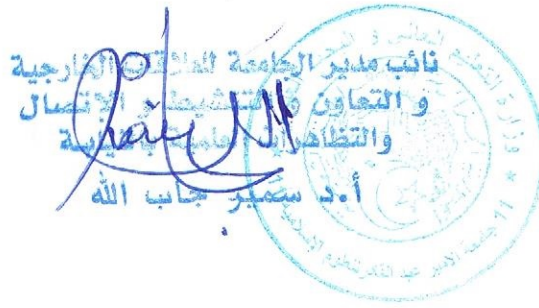 نائب مدير الجامعة للعلاقات الخارجية
و التعاون و التنشيط و الاتصال
والتظاهرات العلمية بالنيابة
أ.د سمير جاب الله
وزارة التعليم العالي و البحث
* 11 جامعة الأمير عبد القادر للعلوم الإسلامية